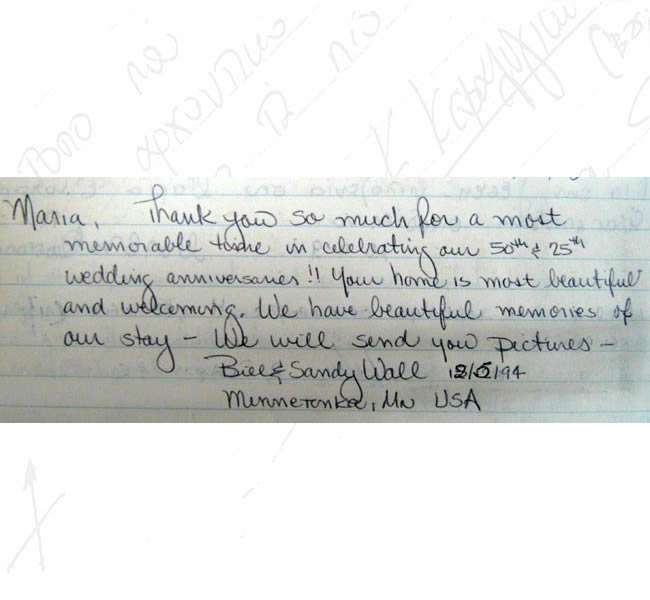 Τόσο να
αρχοντικο
Maria, Thank you so much for a most
memorable time in celebrating our 50th & 25th
wedding anniversaries!! Your home is most beautiful
and welcoming. We have beautiful memories of
our stay – We will send you pictures –
Bill & Sandy Wall 12/5/94
Minnetonka, Mn USA